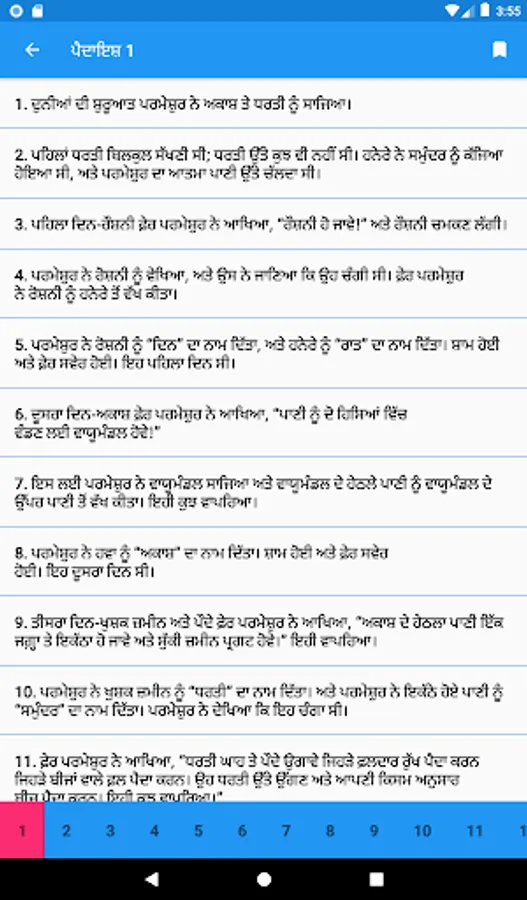 3:55
ਪੈਦਾਇਸ਼ 1
1. ਦੁਨੀਆਂ ਦੀ ਸ਼ੁਰੂਆਤ ਪਰਮੇਸ਼ੁਰ ਨੇ ਅਕਾਸ਼ ਤੇ ਧਰਤੀ ਨੂੰ ਸਾਜਿਆ।
2. ਪਹਿਲਾਂ ਧਰਤੀ ਬਿਲਕੁਲ ਸੱਖਣੀ ਸੀ; ਧਰਤੀ ਉੱਤੇ ਕੁਝ ਵੀ ਨਹੀਂ ਸੀ। ਹਨੇਰੇ ਨੇ ਸਮੁੰਦਰ ਨੂੰ ਕੱਜਿਆ
ਹੋਇਆ ਸੀ, ਅਤੇ ਪਰਮੇਸ਼ੁਰ ਦਾ ਆਤਮਾ ਪਾਣੀ ਉੱਤੇ ਚੱਲਦਾ ਸੀ।
3. ਪਹਿਲਾ ਦਿਨ-ਰੌਸ਼ਨੀ ਫ਼ੇਰ ਪਰਮੇਸ਼ੁਰ ਨੇ ਆਖਿਆ, “ਰੌਸ਼ਨੀ ਹੋ ਜਾਵੇ!” ਅਤੇ ਰੌਸ਼ਨੀ ਚਮਕਣ ਲੱਗੀ।
4. ਪਰਮੇਸ਼ੁਰ ਨੇ ਰੋਸ਼ਨੀ ਨੂੰ ਵੇਖਿਆ, ਅਤੇ ਉਸ ਨੇ ਜਾਣਿਆ ਕਿ ਉਹ ਚੰਗੀ ਸੀ। ਫ਼ੇਰ ਪਰਮੇਸ਼ੁਰ
ਨੇ ਰੋਸ਼ਨੀ ਨੂੰ ਹਨੇਰੇ ਤੋਂ ਵੱਖ ਕੀਤਾ।
5. ਪਰਮੇਸ਼ੁਰ ਨੇ ਰੋਸ਼ਨੀ ਨੂੰ “ਦਿਨ” ਦਾ ਨਾਮ ਦਿੱਤਾ, ਅਤੇ ਹਨੇਰੇ ਨੂੰ “ਰਾਤ” ਦਾ ਨਾਮ ਦਿੱਤਾ। ਸ਼ਾਮ ਹੋਈ
ਅਤੇ ਫ਼ੇਰ ਸਵੇਰ ਹੋਈ। ਇਹ ਪਹਿਲਾ ਦਿਨ ਸੀ।
6. ਦੂਸਰਾ ਦਿਨ-ਅਕਾਸ਼ ਫ਼ੇਰ ਪਰਮੇਸ਼ੁਰ ਨੇ ਆਖਿਆ, “ਪਾਣੀ ਨੂੰ ਦੋ ਹਿਸਿਆਂ ਵਿੱਚ
ਵੰਡਣ ਲਈ ਵਾਯੂਮੰਡਲ ਹੋਵੇ!”
7. ਇਸ ਲਈ ਪਰਮੇਸ਼ੁਰ ਨੇ ਵਾਯੂਮੰਡਲ ਸਾਜਿਆ ਅਤੇ ਵਾਯੂਮੰਡਲ ਦੇ ਹੇਠਲੇ ਪਾਣੀ ਨੂੰ ਵਾਯੂਮੰਡਲ ਦੇ
ਉੱਪਰ ਪਾਣੀ ਤੋਂ ਵੱਖ ਕੀਤਾ। ਇਹੀ ਕੁਝ ਵਾਪਰਿਆ।
8. ਪਰਮੇਸ਼ੁਰ ਨੇ ਹਵਾ ਨੂੰ “ਅਕਾਸ਼” ਦਾ ਨਾਮ ਦਿੱਤਾ। ਸ਼ਾਮ ਹੋਈ ਅਤੇ ਫ਼ੇਰ ਸਵੇਰ
ਹੋਈ। ਇਹ ਦੂਸਰਾ ਦਿਨ ਸੀ।
9. ਤੀਸਰਾ ਦਿਨ-ਖੁਸ਼ਕ ਜ਼ਮੀਨ ਅਤੇ ਪੌਦੇ ਫ਼ੇਰ ਪਰਮੇਸ਼ੁਰ ਨੇ ਆਖਿਆ, “ਅਕਾਸ਼ ਦੇ ਹੇਠਲਾ ਪਾਣੀ ਇੱਕ
ਜਗ੍ਹਾ ਤੇ ਇਕੱਠਾ ਹੋ ਜਾਵੇ ਅਤੇ ਸੁੱਕੀ ਜ਼ਮੀਨ ਪ੍ਰਗਟ ਹੋਵੇ।” ਇਹੀ ਵਾਪਰਿਆ।
10. ਪਰਮੇਸ਼ੁਰ ਨੇ ਖੁਸ਼ਕ ਜ਼ਮੀਨ ਨੂੰ “ਧਰਤੀ” ਦਾ ਨਾਮ ਦਿੱਤਾ। ਅਤੇ ਪਰਮੇਸ਼ੁਰ ਨੇ ਇਕੱਠੇ ਹੋਏ ਪਾਣੀ ਨੂੰ
“ਸਮੁੰਦਰ” ਦਾ ਨਾਮ ਦਿੱਤਾ। ਪਰਮੇਸ਼ੁਰ ਨੇ ਦੇਖਿਆ ਕਿ ਇਹ ਚੰਗਾ ਸੀ।
11. ਫ਼ੇਰ ਪਰਮੇਸ਼ੁਰ ਨੇ ਆਖਿਆ, “ਧਰਤੀ ਘਾਹ ਤੇ ਪੌਦੇ ਉਗਾਵੇ ਜਿਹੜੇ ਫ਼ਲਦਾਰ ਰੁੱਖ ਪੈਦਾ ਕਰਨ
ਜਿਹੜੇ ਬੀਜਾਂ ਵਾਲੇ ਫ਼ਲ ਪੈਦਾ ਕਰਨ। ਉਹ ਧਰਤੀ ਉੱਤੇ ਉੱਗਣ ਅਤੇ ਆਪਣੀ ਕਿਸਮ ਅਨੁਸਾਰ
ਬੀਜ ਪੈਦਾ ਕਰਨ। ਇਹੀ ਕੁਝ ਵਾਪਰਿਆ।”
1 2 3 4 5 6 7 8 9 10 11 1